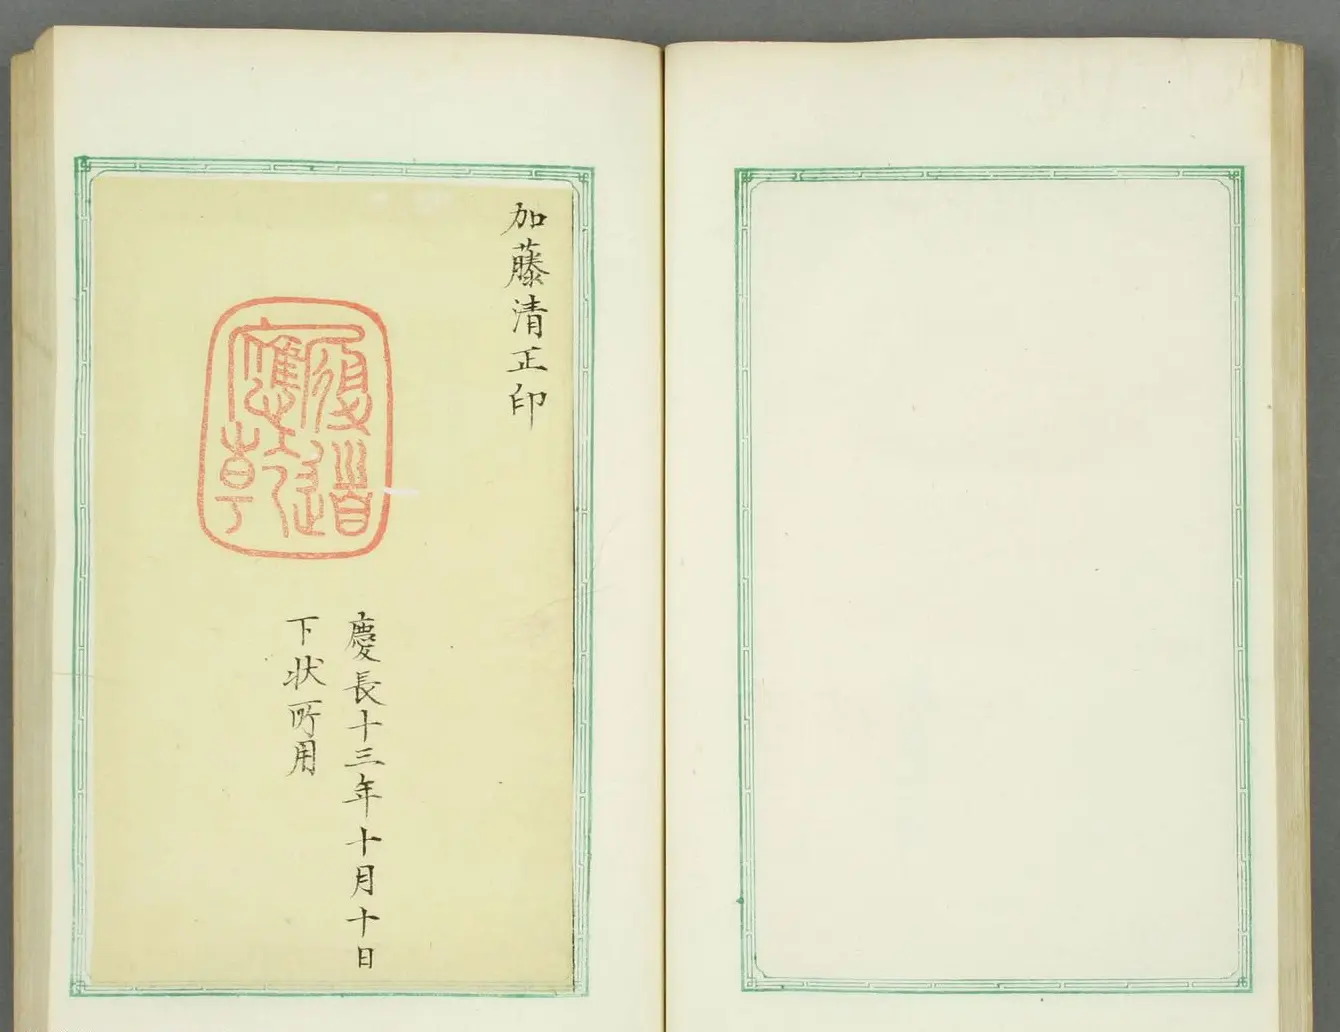 加藤清正印
慶長十三年十月十日
下状所用